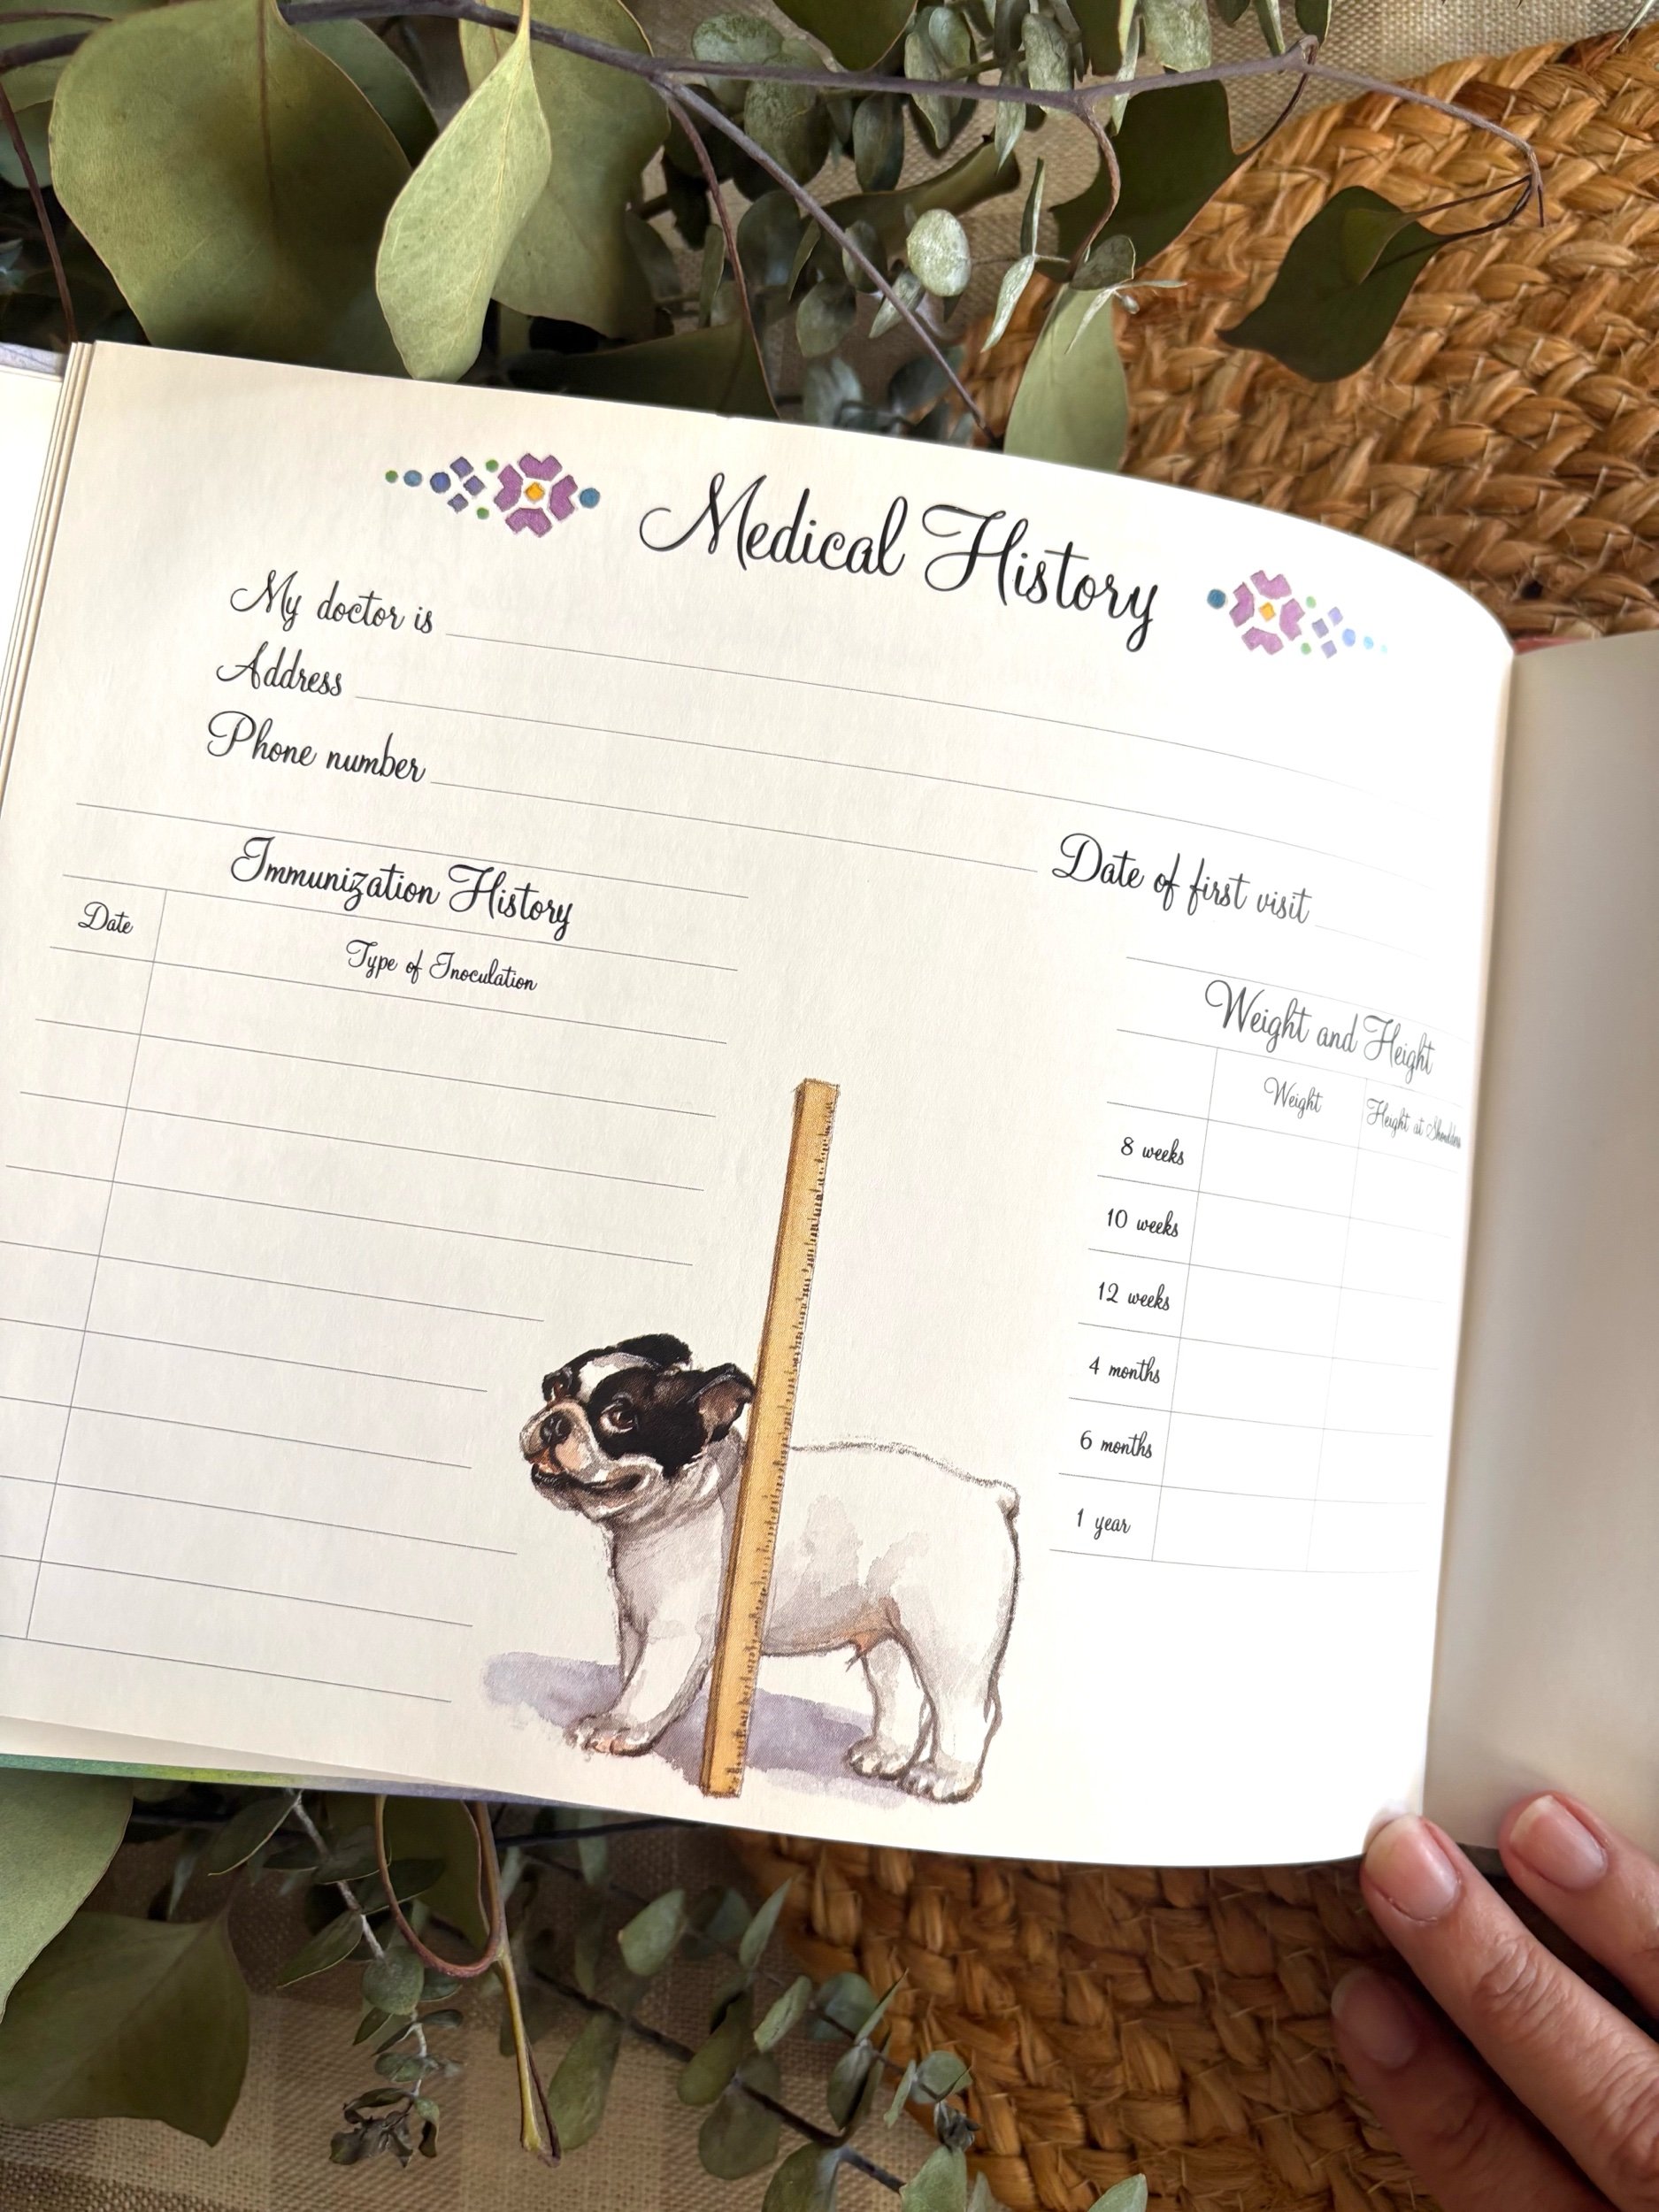 Medical History
My doctor is
Address
Phone number
Date of first visit
Immunization History
Date
Type of Inoculation
Weight and Height
Weight
Height at Shoulders
8 weeks
10 weeks
12 weeks
4 months
6 months
1 year